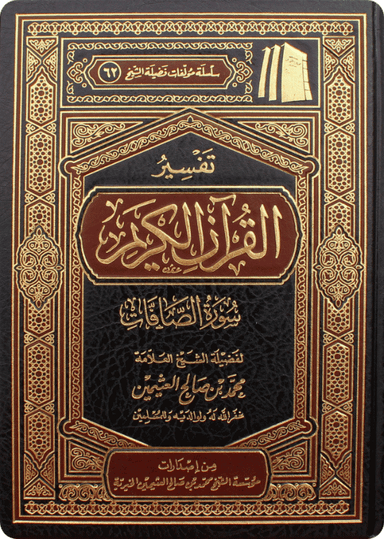 سلسلة مؤلفات فضيلة الشيخ ٦٢
تَفْسِيرُ
القُرآن الكَرِيم
سُورَةُ الصَّافَّات
لفضيلة الشيخ العلامة
محمد بن صالح العثيمين
غفر الله له ولوالديه وللمسلمين
من إصدارات
مؤسسة الشيخ محمد بن صالح العثيمين الخيرية